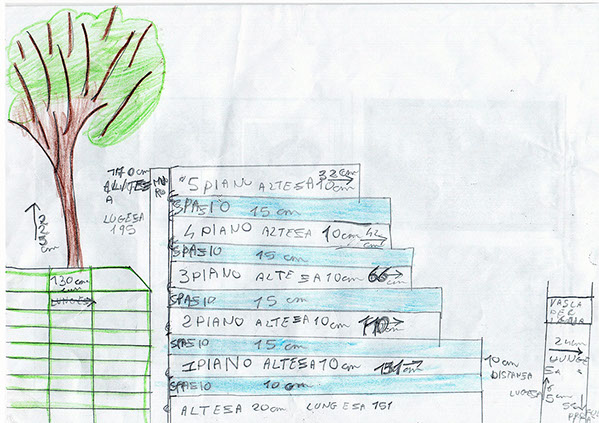 170 cm
ALITES
A
LUGESA
195
MURO
225 cm
130 cm
LUNGES
32 cm
5 PIANO ALTESA 10 cm
SPASIO 15 cm
4 PIANO ALTESA 10 cm 42 cm
SPASIO 15 cm
3 PIANO ALTESA 10 cm 66 cm
SPASIO 15 cm
2 PIANO ALTESA 10 cm 110 cm
SPASIO 15 cm
1 PIANO ALTESA 10 cm 151
SPASIO 10 cm
ALTESA 20 cm LUNGESA 151
10 cm
DISTANSA
VASCA
PER
24 cm
LUNGE
SA
LUGESA
5 cm
5 cm